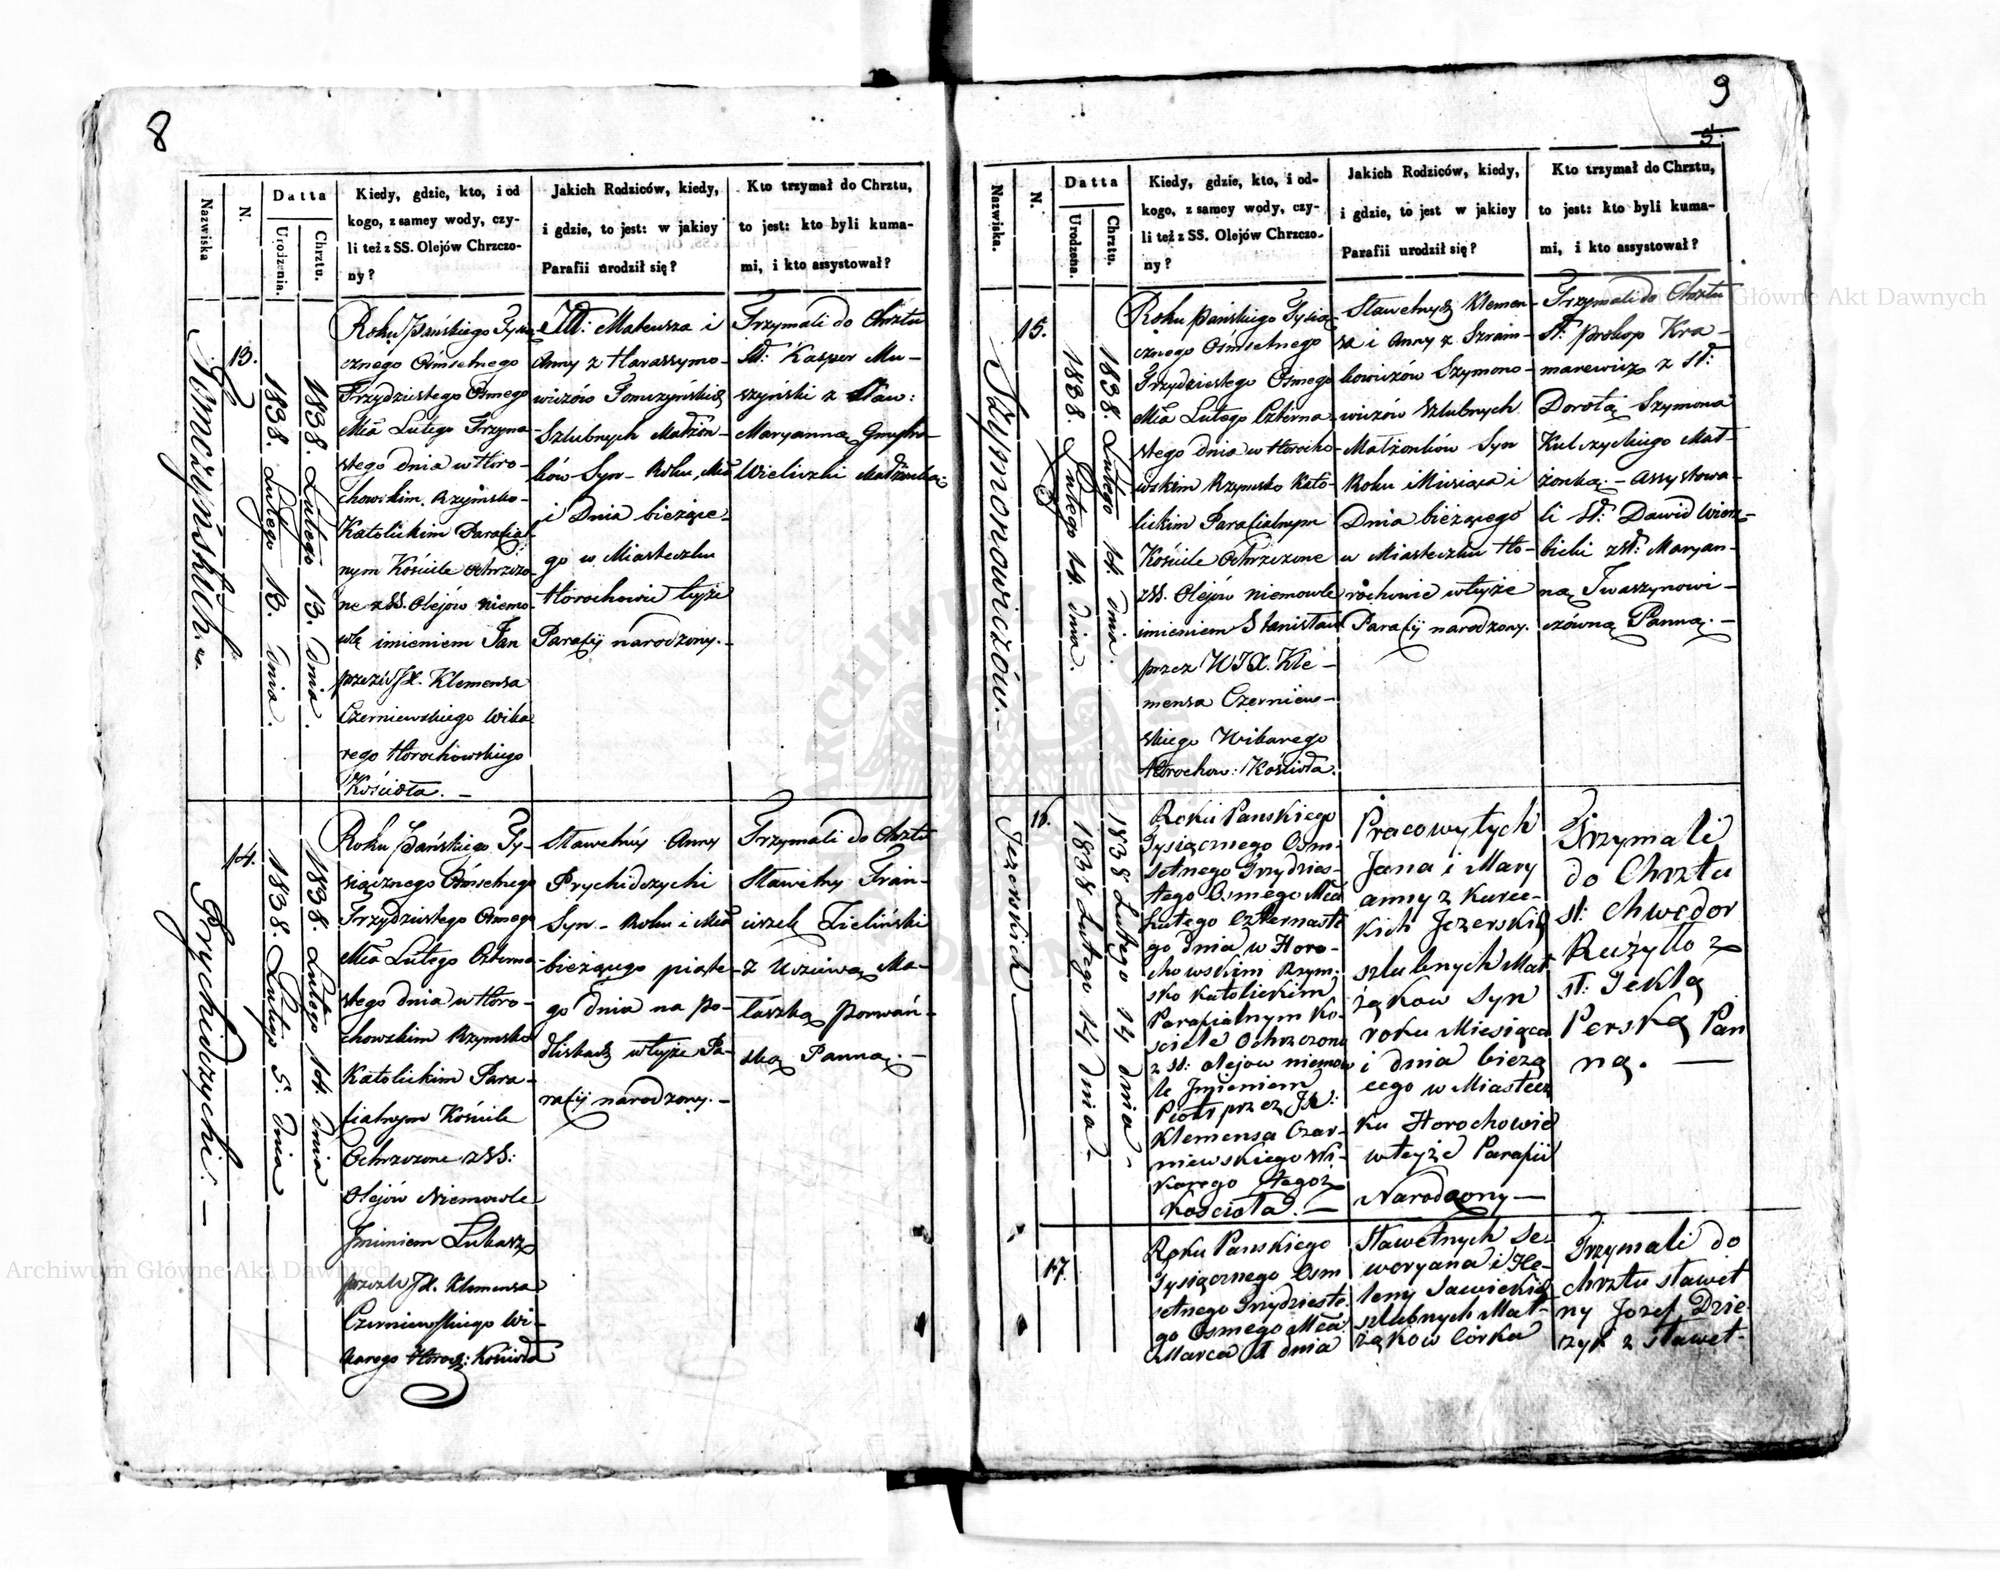 8
Nazwiska
N.
Datta
Urodzenia.
Chrztu.
Kiedy, gdzie, kto, i od
kogo, z samey wody, czy-
li też z SS. Olejów Chrzczo-
ny?
Jakich Rodziców, kiedy,
i gdzie, to jest: w jakiey
Parafii urodził się?
Kto trzymał do Chrztu,
to jest: kto byli kuma-
mi, i kto assystował?
13.
1838. Lutego 13. dnia.
1838. Lutego 13. dnia.
Roku Pańskiego Tysią
cznego Ośmsetnego
Trzydziestego Osmego
Mca Lutego Trzyna-
stego dnia w Horo-
chowskim Rzymsko-
Katolickim Parafial
nym Kościele Ochrzczo
ne z SS. Olejów niemo-
wlę imieniem Jan
przez WJX. Klemensa
Czerniewskiego Wika
rego Horochowskiego
Kościoła. –
Mateusza i
Anny z Harassymo-
wiczów
Szlubnych Małżon-
ków Syn – Roku, Mca
i Dnia bieżące-
go w Miasteczku
Horochowie tejże
Parafij narodzony. –
Trzymali do Chrztu
Sł: Kasper Mu-
szyński z Sław:
Maryanną
Małżonką
14.
Prychidzycki. –
1838. Lutego 5. dnia
1838. Lutego 14. dnia
Roku Pańskiego Ty-
siącznego Ośmsetnego
Trzydziestego Osmego
Mca Lutego Czterna-
stego dnia w Horo-
chowskim Rzymsko
Katolickim Para-
fialnym Kościele
Ochrzczone z SS:
Olejów Niemowle
Jmieniem Łukasz
przez WJX. Klemensa
Czerniewskiego Wi-
karego Horoch: Kościoła
Sławetnéy Anny
Prychidzycki
Syn – Roku i Mca
bieżącego piąte-
go dnia na Po-
dliskach w tejże Pa-
rafij narodzony. –
Trzymali do Chrztu
Sławetny Fran-
ciszek Zieliński
z Uczciwą Ma-
łaszką
Panną. –
9
5.
Nazwiska.
N.
Datta
Urodzena.
Chrztu.
Kiedy, gdzie, kto, i od-
kogo, z samey wody, czy-
li też z SS. Olejów Chrzczo-
ny?
Jakich Rodziców, kiedy,
i gdzie, to jest w jakiey
Parafii urodził się?
Kto trzymał do Chrztu,
to jest: kto byli kuma-
mi, i kto assystował?
15.
Szymonowiczów. –
1838. Lutego 14. dnia.
1838. Lutego 14. dnia.
Roku Pańskiego Tysią
cznego Ośmsetnego
Trzydziestego Osmego
Mca Lutego Czterna-
stego dnia w Horocho-
wskim Rzymsko Kato-
lickim Parafialnym
Kościele Ochrzczone
z SS. Olejów niemowle
imieniem Stanisław
przez WJX. Kle-
mensa Czerniew-
skiego Wikarego
Horochow: Kościoła.
Sławetnych Klemen-
sa i Anny z Szraim-
kowiczów Szymono-
wiczów Szlubnych
Małżonków Syn
Roku i Miesiąca i
Dnia bieżącego
w Miasteczku Ho-
rochowie w tejże
Parafij narodzony.
Trzymali do Chrztu
Sł: Prokop Kra-
marewicz z Sł:
Dorotą Szymona
Kulczyckiego Mał-
żonką. – Assystowa-
li Sł: Dawid Wierz-
bicki z Sł: Maryan-
ną Iwaszynowi-
czówną Panną. –
16.
Jezerskich
1838 Lutego 14 dnia –
1838 Lutego 14 dnia –
Roku Panskiego
Tysiącznego Osm-
setnego Trzydzies-
tego Osmego Mca
Lutego Czternaste
go dnia w Horo-
chowskim Rzym-
sko Katolickim
Parafialnym Ko-
sciele Ochrzczono
z SS: olejow niemow
le Jmieniem
Piotr przez JX:
Klemensa Czar-
niewskiego Wi-
karego tegoż
Kościoła. –
Pracowytych
Jana i Mary
anny z Kurec-
kich Jezerskich
szlubnych Mał
żąkow Syn
roku Miesiąca
i dnia bieżą
cego w Miastecz
ku Horochowie
w tejże Parafii
Narodzony –
Trzymali
do Chrztu
sł: Chwedor
Rużyłło z
sł: Teklą
Perską Pan
ną. –
17.
Roku Panskiego
Tysiącznego Osm
setnego Trzydzieste
go Osmego Mca
Marca 1 dnia
Sławetnych Se-
weryana i He-
leny Sawickich
szlubnych Mał-
żąkow Córka
Trzymali do
chrztu sławet
ny Jozef Dzie-
zyk z sławet-
Archiwum Główne Akt Dawnych
Archiwum Główne Akt Dawnych